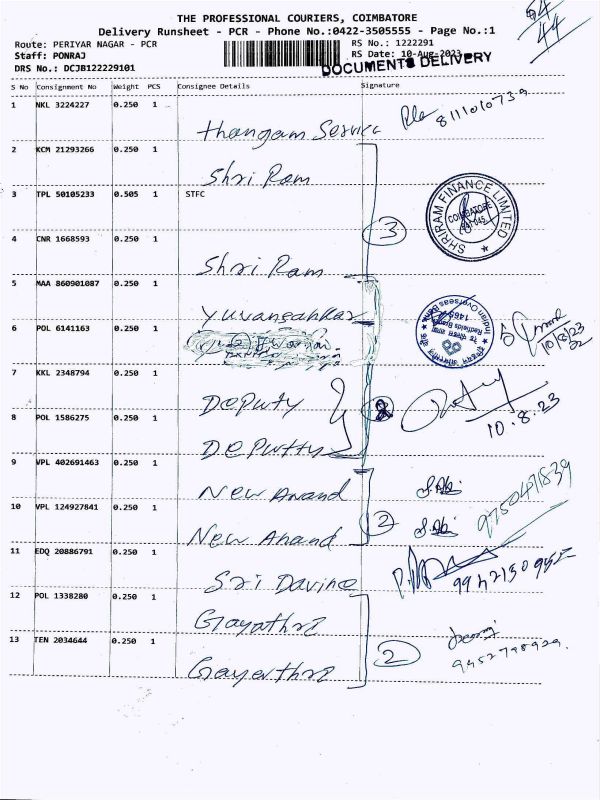 THE PROFESSIONAL COURIERS, COIMBATORE
Delivery Runsheet - PCR - Phone No.:0422-3505555 - Page No.:1
54
44
Route: PERIYAR NAGAR - PCR
RS No.: 1222291
Staff: PONRAJ
RS Date: 10-Aug-2023
DRS No.: DCJB122229101
DOCUMENTS DELIVERY
S No Consignment No Weight PCS Consignee Details Signature
1 NKL 3224227 0.250 1
Thangam Service 8111010739
2 KCM 21293266 0.250 1
Shri Ram
3 TPL 50105233 0.505 1 STFC
3
SHRIRAM FINANCE LIMITED
COIMBATORE
641 045
4 CNR 1668593 0.250 1
Shri Ram
5 MAA 860901087 0.250 1
Yuvangankar
Indian Overseas Bank
10/8/23
6 POL 6141163 0.250 1
7 KKL 2348794 0.250 1
Deputy
2
10.8.23
8 POL 1586275 0.250 1
Deputty
9 VPL 402691463 0.250 1
New Anand
10 VPL 124927841 0.250 1
New Anand
2
9750471839
11 EDQ 20886791 0.250 1
Sri Davine
12 POL 1338280 0.250 1
Gayathri
13 TEN 2034644 0.250 1
Gayerthri
2